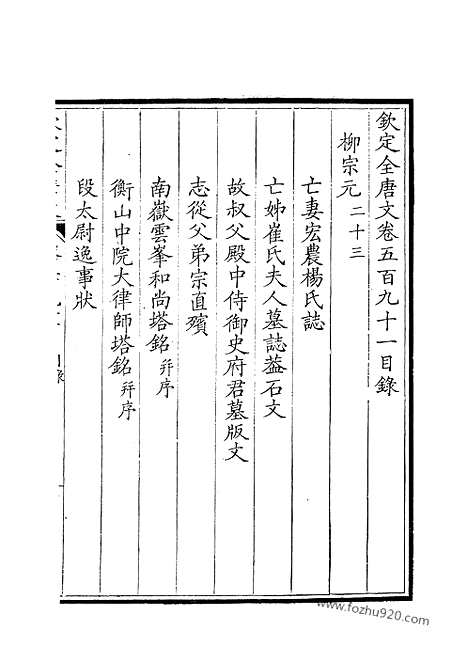 欽定全唐文卷五百九十一目錄
柳宗元二十三
亡妻宏農楊氏誌
亡姊崔氏夫人墓誌葢石文
故叔父殿中侍御史府君墓版文
志從父弟宗直殯
南嶽雲峯和尚塔銘并序
衡山中院大律師塔銘并序
段太尉逸事狀
目錄
www.fozhu920.com